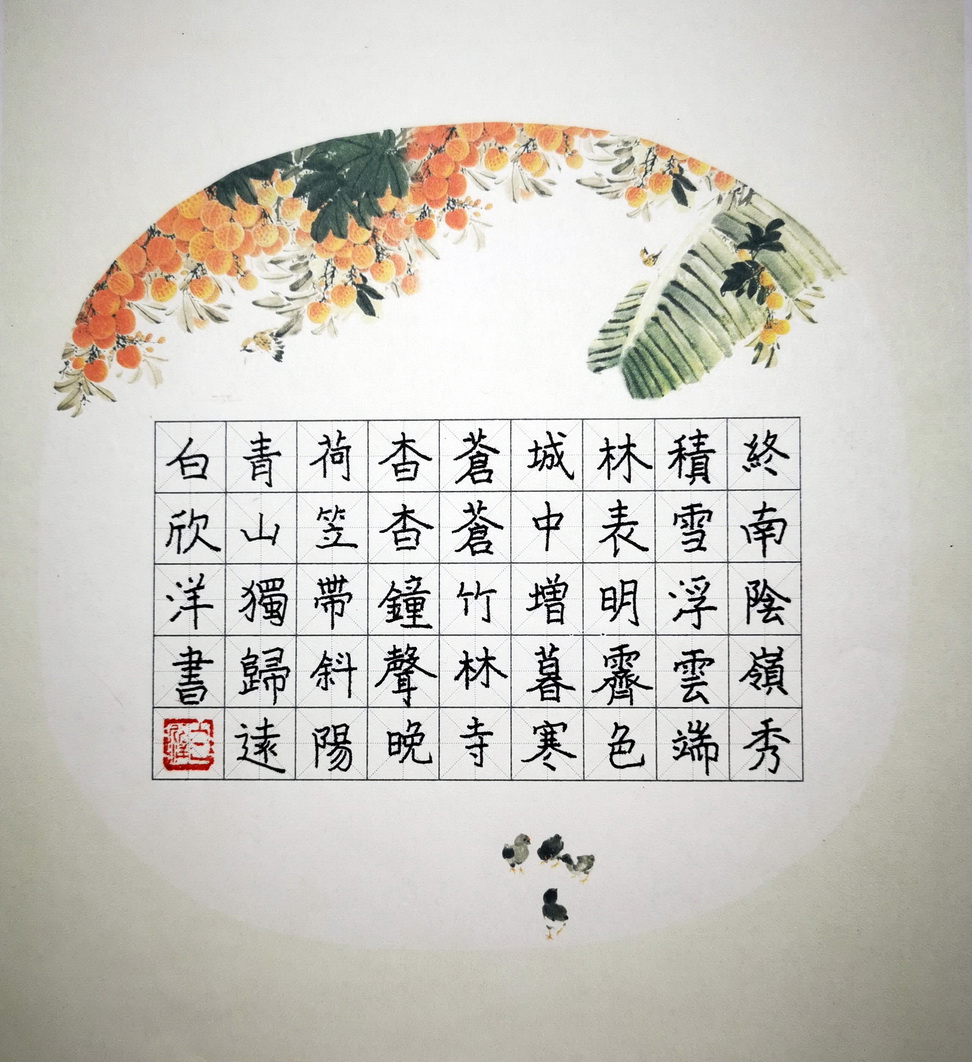 終南陰嶺秀
積雪浮雲端
林表明霽色
城中增暮寒
蒼蒼竹林寺
杳杳鐘聲晚
荷笠帶斜陽
青山獨歸遠
白欣洋書
白欣洋